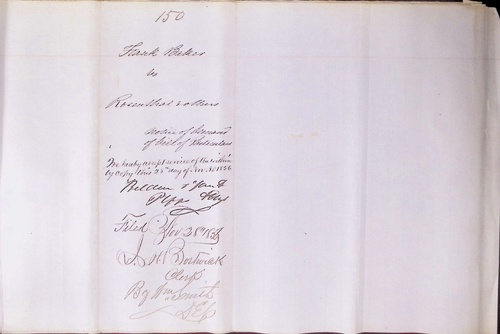 150
Frank Baker
vs
Rosenthal & others
Notice of Demand
of Bill of Particulars
We hereby accept service of the within
by copy this 25th day of Nov. A.D. 1856
&
Attys
Filed Nov 25th 1856
Bostwick
Clerk
By Wm Smith